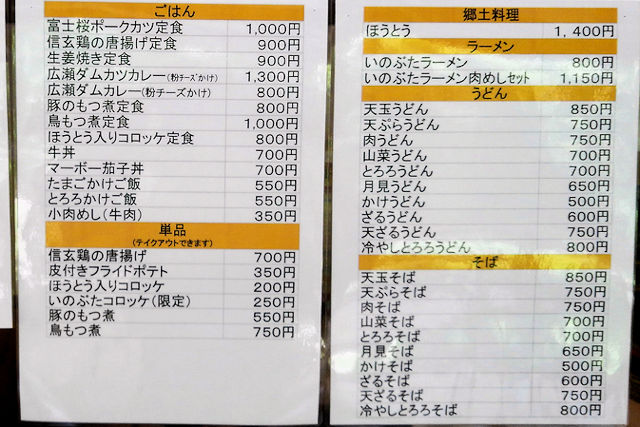 ごはん
富士桜ポークカツ定食 1,000円
信玄鶏の唐揚げ定食 900円
生姜焼き定食 900円
広瀬ダムカツカレー(粉チーズかけ) 1,300円
広瀬ダムカレー(粉チーズかけ) 800円
豚のもつ煮定食 800円
鳥もつ煮定食 1,000円
ほうとう入りコロッケ定食 800円
牛丼 700円
マーボー茄子丼 700円
たまごかけご飯 550円
とろろかけご飯 550円
小肉めし(牛肉) 350円
単品
(テイクアウトできます)
信玄鶏の唐揚げ 700円
皮付きフライドポテト 350円
ほうとう入りコロッケ 200円
いのぶたコロッケ(限定) 250円
豚のもつ煮 550円
鳥もつ煮 750円
郷土料理
ほうとう 1,400円
ラーメン
いのぶたラーメン 800円
いのぶたラーメン肉めしセット 1,150円
うどん
天玉うどん 850円
天ぷらうどん 750円
肉うどん 750円
山菜うどん 700円
とろろうどん 700円
月見うどん 650円
かけうどん 500円
ざるうどん 600円
天ざるうどん 750円
冷やしとろろうどん 800円
そば
天玉そば 850円
天ぷらそば 750円
肉そば 750円
山菜そば 700円
とろろそば 700円
月見そば 650円
かけそば 500円
ざるそば 600円
天ざるそば 750円
冷やしとろろそば 800円